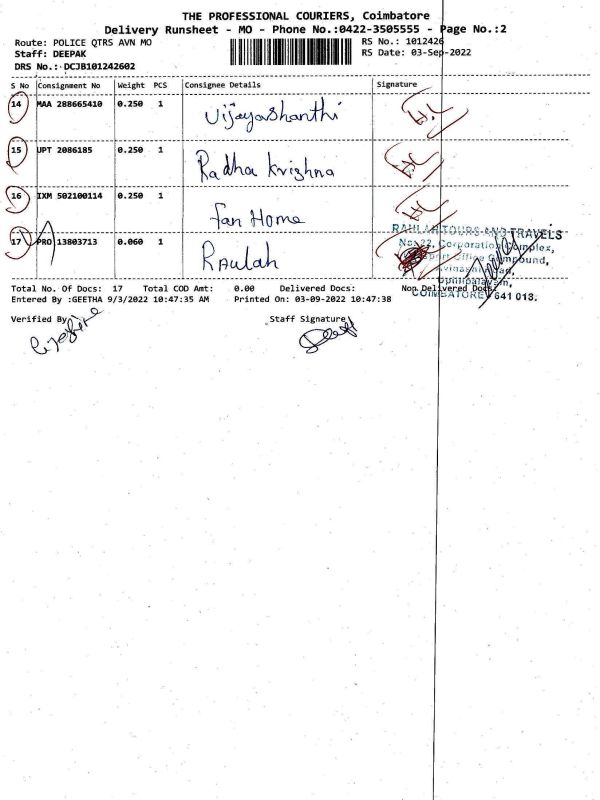 THE PROFESSIONAL COURIERS, Coimbatore
Delivery Runsheet - MO - Phone No.:0422-3505555 - Page No.:2
Route: POLICE QTRS AVN MO
RS No.: 1012426
Staff: DEEPAK
RS Date: 03-Sep-2022
DRS No.: DCJB101242602
S No Consignment No Weight PCS Consignee Details Signature
14 MAA 288665410 0.250 1 Vijayashanthi
15 UPT 2086185 0.250 1 Radha Krishna
16 IXM 502100114 0.250 1 Fan Home
17 PRO 13803713 0.060 1 Raulah
RAULAH TOURS AND TRAVELS
No: 22, Corporation Complex,
Office Compound,
Road,
COIMBATORE 641 018.
Total No. Of Docs: 17 Total COD Amt: 0.00 Delivered Docs: Non Delivered Docs:
Entered By :GEETHA 9/3/2022 10:47:35 AM Printed On: 03-09-2022 10:47:38
Verified By
Staff Signature